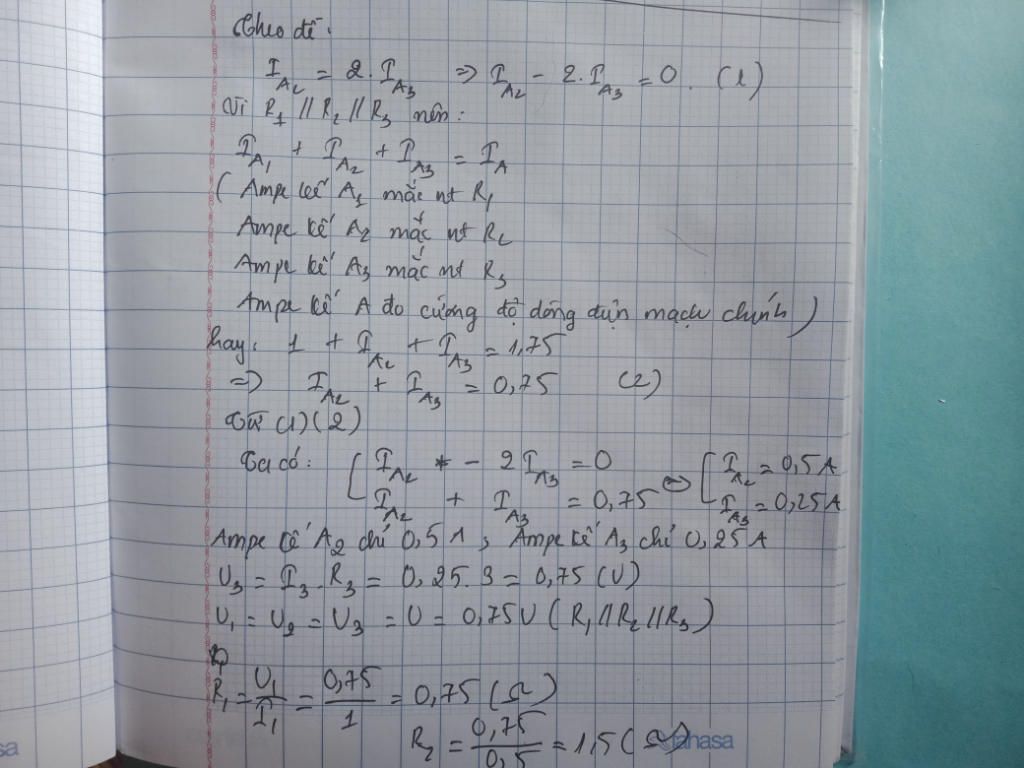 Theo đề:
I_A2 = 2.I_A3 => I_A2 - 2.I_A3 = 0. (1)
Vì R1 // R2 // R3 nên:
I_A1 + I_A2 + I_A3 = I_A
(Ampe kế A1 mắc nt R1
Ampe kế A2 mắc nt R2
Ampe kế A3 mắc nt R3
Ampe kế A đo cường độ dòng điện mạch chính)
hay: 1 + I_A2 + I_A3 = 1,75
=> I_A2 + I_A3 = 0,75 (2)
Từ (1)(2)
Ta có: [ I_A2 - 2 I_A3 = 0
I_A2 + I_A3 = 0,75 <=> [ I_A2 = 0,5A
I_A3 = 0,25A
Ampe kế A2 chỉ 0,5A, Ampe kế A3 chỉ 0,25A
U3 = I3.R3 = 0,25.3 = 0,75 (V)
U1 = U2 = U3 = U = 0,75V (R1//R2//R3)
R1 = U1/I1 = 0,75/1 = 0,75 (Ω)
R2 = 0,75/0,5 = 1,5 (Ω)
ahasa